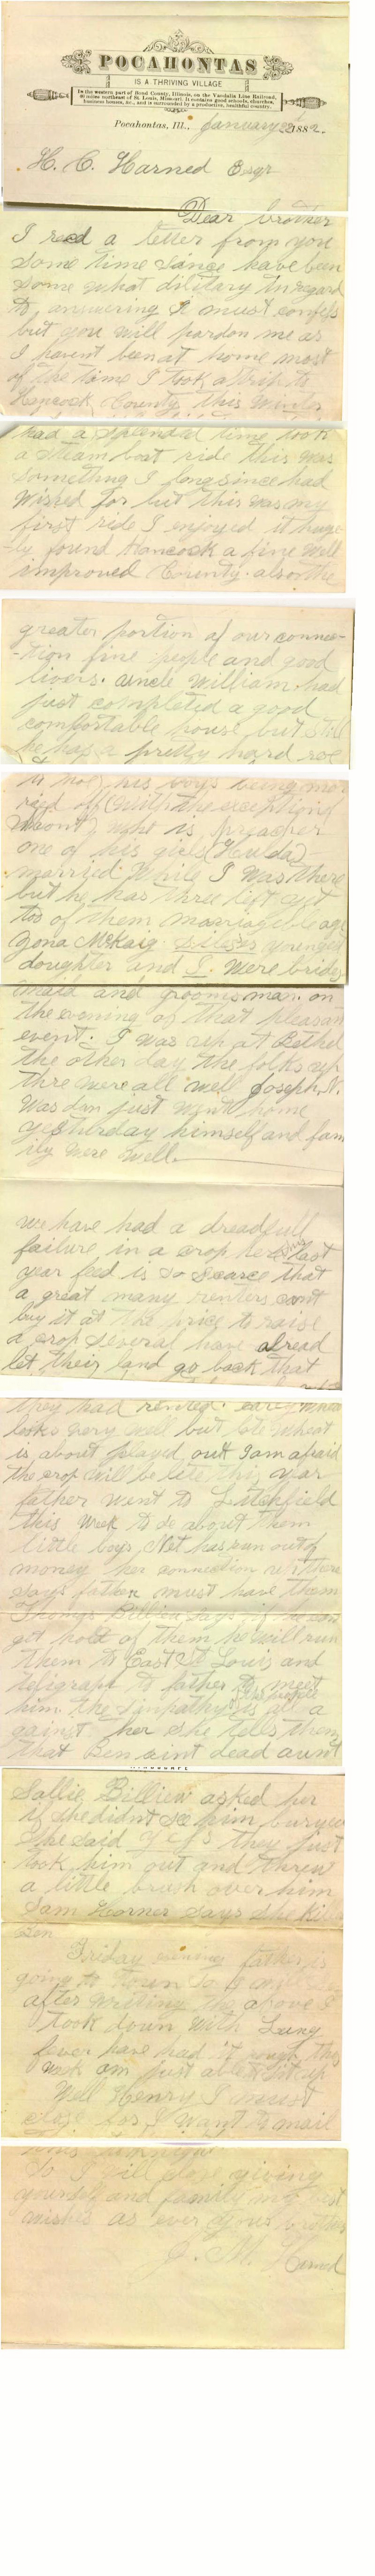 POCAHONTAS
IS A THRIVING VILLAGE
In the western part of Bond County, Illinois, on the Vandalia Line Railroad,
miles northeast of St. Louis, Missouri. It contains good schools, churches,
business houses, &c., and is surrounded by a productive, healthful country.
Pocahontas, Ill., January 1882.
H. C. Harned Esqr
Dear brother
I recd a letter from you
some time since have been
some what dilitary in regard
to answering I must confess
but you will pardon me as
I havent been at home most
of the time I took a trip to
Hancock County this Winter
had a splended time took
a steam boat ride this was
something I long since had
wished for but this was my
first ride I enjoyed it huge-
ly found Hancock a fine well
improved County. also the
greater portion of our connec-
-tion fine people and good
livers. uncle William had
just completed a good
comfortable house but still
he has a pretty hard roe
to hoe his boys being mar
ried of (with the exception of
) what is preacher
one of his girls (Hulda)
married While I was there
but he has three left yet
too of them marriageable age
McKaig youngest
doughter and I. were brides
maid and grooms man. on
the evening of that pleasan
event. I was up at Bethel
the other day the folks up
thre were all well Joseph. N.
was down just went home
yesturday himself and fam
ily were well.
we have had a dreadfull
failure in a crop here last
year feed is so scarce that
a great many renters cant
buy it at the price to raise
a crop several have alread
let their land go back that
they had rented. early wheat
looks very well but late wheat
is about played out I am afraid
the crop will be lite this year
father went to Litchfield
this week to se about them
little boys Net has run out of
money her connection up there
says father must have them
Thomas Billiew says if he can
get hold of them he will run
them to East St Louis and
telegraph to father to meet
him the simpathy of the people is all a
gainst her she tells them
that Ben aint dead aunt
Sallie Billiew asked her
if she didnt see him buried
she said they just
took him out and threw
a little brush over him
Sam Horner says she kill
Ben
Friday evening father is
going to town so I
after writing the above I
took down with Lung
fever have had it rough this
week am just able to sit up
Well Henry I must
close for I want to mail
this
So I will close giving
yourself and family my best
wishes as ever your brother
J. M. Harned